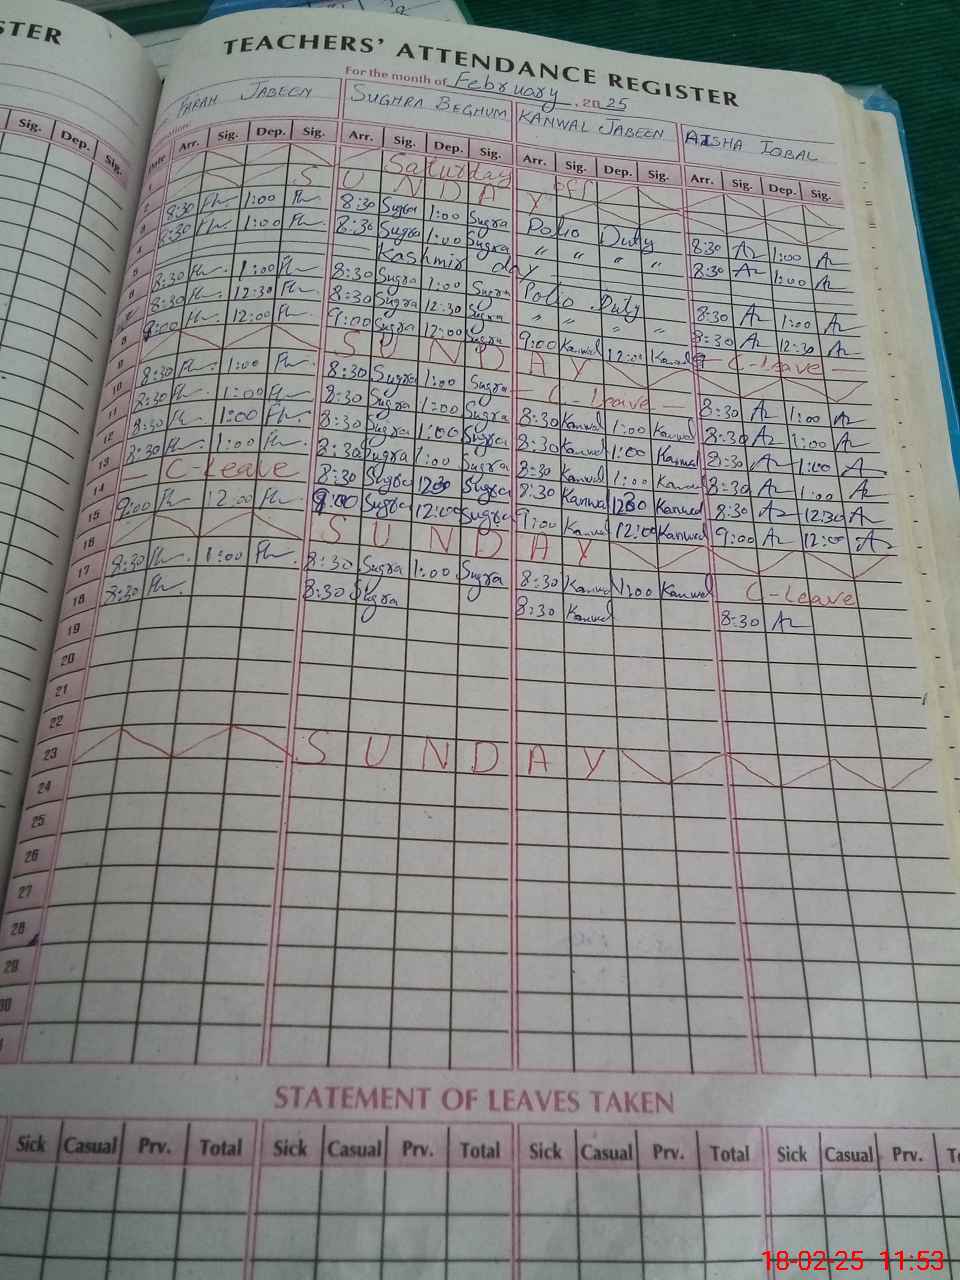 STER
TEACHERS' ATTENDANCE REGISTER
For the month of February, 2025
FARAH JABEEN SUGHRA BEGHUM KANWAL JABEEN AISHA IQBAL
Sig. Dep. Sig. Date Arr. Sig. Dep. Sig. Arr. Sig. Dep. Sig. Arr. Sig. Dep. Sig. Arr. Sig. Dep. Sig.
1 Saturday off
2 S U N D A Y
3 8:30 1:00 8:30 Sugra 1:00 Sugra Polio Duty 8:30 1:00
4 8:30 1:00 8:30 Sugra 1:00 Sugra " " " " 8:30 1:00
5 Kashmir day
6 8:30 1:00 8:30 Sugra 1:00 Sugra Polio Duty 8:30 1:00
7 8:30 12:30 8:30 Sugra 12:30 Sugra " " " " 8:30 12:30
8 9:00 12:00 9:00 Sugra 12:00 Sugra 9:00 Kanwal 12:00 Kanwal C-Leave
9 S U N D A Y
10 8:30 1:00 8:30 Sugra 1:00 Sugra C-Leave 8:30 1:00
11 8:30 1:00 8:30 Sugra 1:00 Sugra 8:30 Kanwal 1:00 Kanwal 8:30 1:00
12 8:30 1:00 8:30 Sugra 1:00 Sugra 8:30 Kanwal 1:00 Kanwal 8:30 1:00
13 8:30 1:00 8:30 Sugra 1:00 Sugra 8:30 Kanwal 1:00 Kanwal 8:30 1:00
14 C-Leave 8:30 Sugra 1230 Sugra 8:30 Kanwal 1230 Kanwal 8:30 12:30
15 9:00 12:00 9:00 Sugra 12:00 Sugra 9:00 Kanwal 12:00 Kanwal 9:00 12:00
16 S U N D A Y
17 8:30 1:00 8:30 Sugra 1:00 Sugra 8:30 Kanwal 1:00 Kanwal C-Leave
18 8:30 8:30 Sugra 8:30 Kanwal 8:30
19
20
21
22
23 S U N D A Y
24
25
26
27
28
29
30
STATEMENT OF LEAVES TAKEN
Sick Casual Prv. Total Sick Casual Prv. Total Sick Casual Prv. Total Sick Casual Prv.
18-02-25 11:53